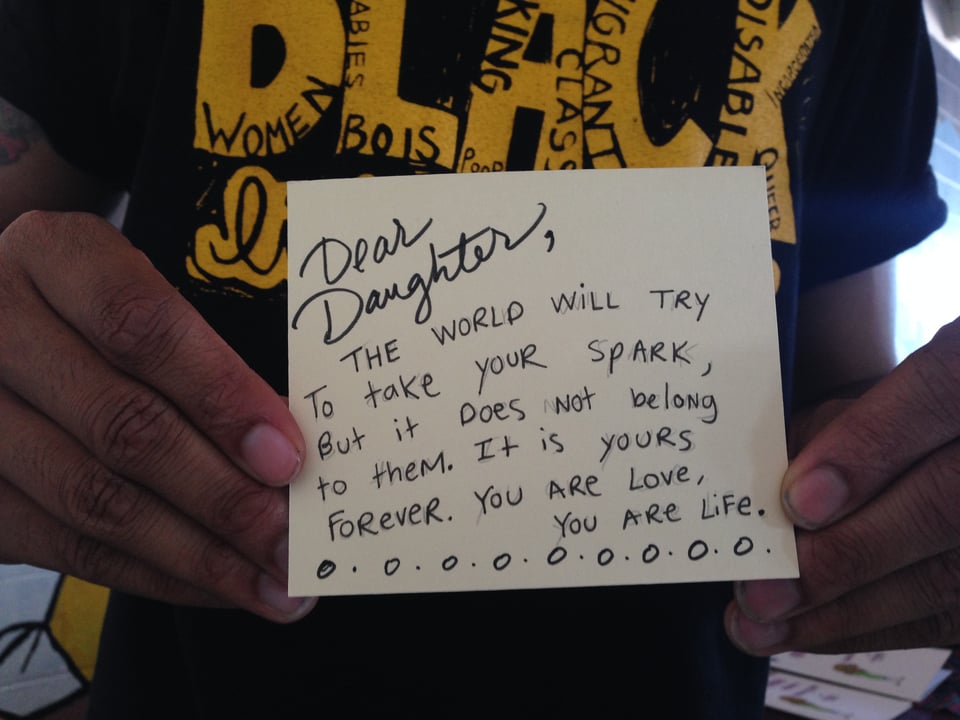 BLACK
WOMEN
BOIS
POOR
CLASS
DISABLE
QUEER
Dear
Daughter,
THE WORLD WiLL TRY
To take YOUR SPARK,
But it DOES NOT belong
to them. It is YOURS
FOREVER. YOU ARE LOVE,
YOU ARE LiFE.